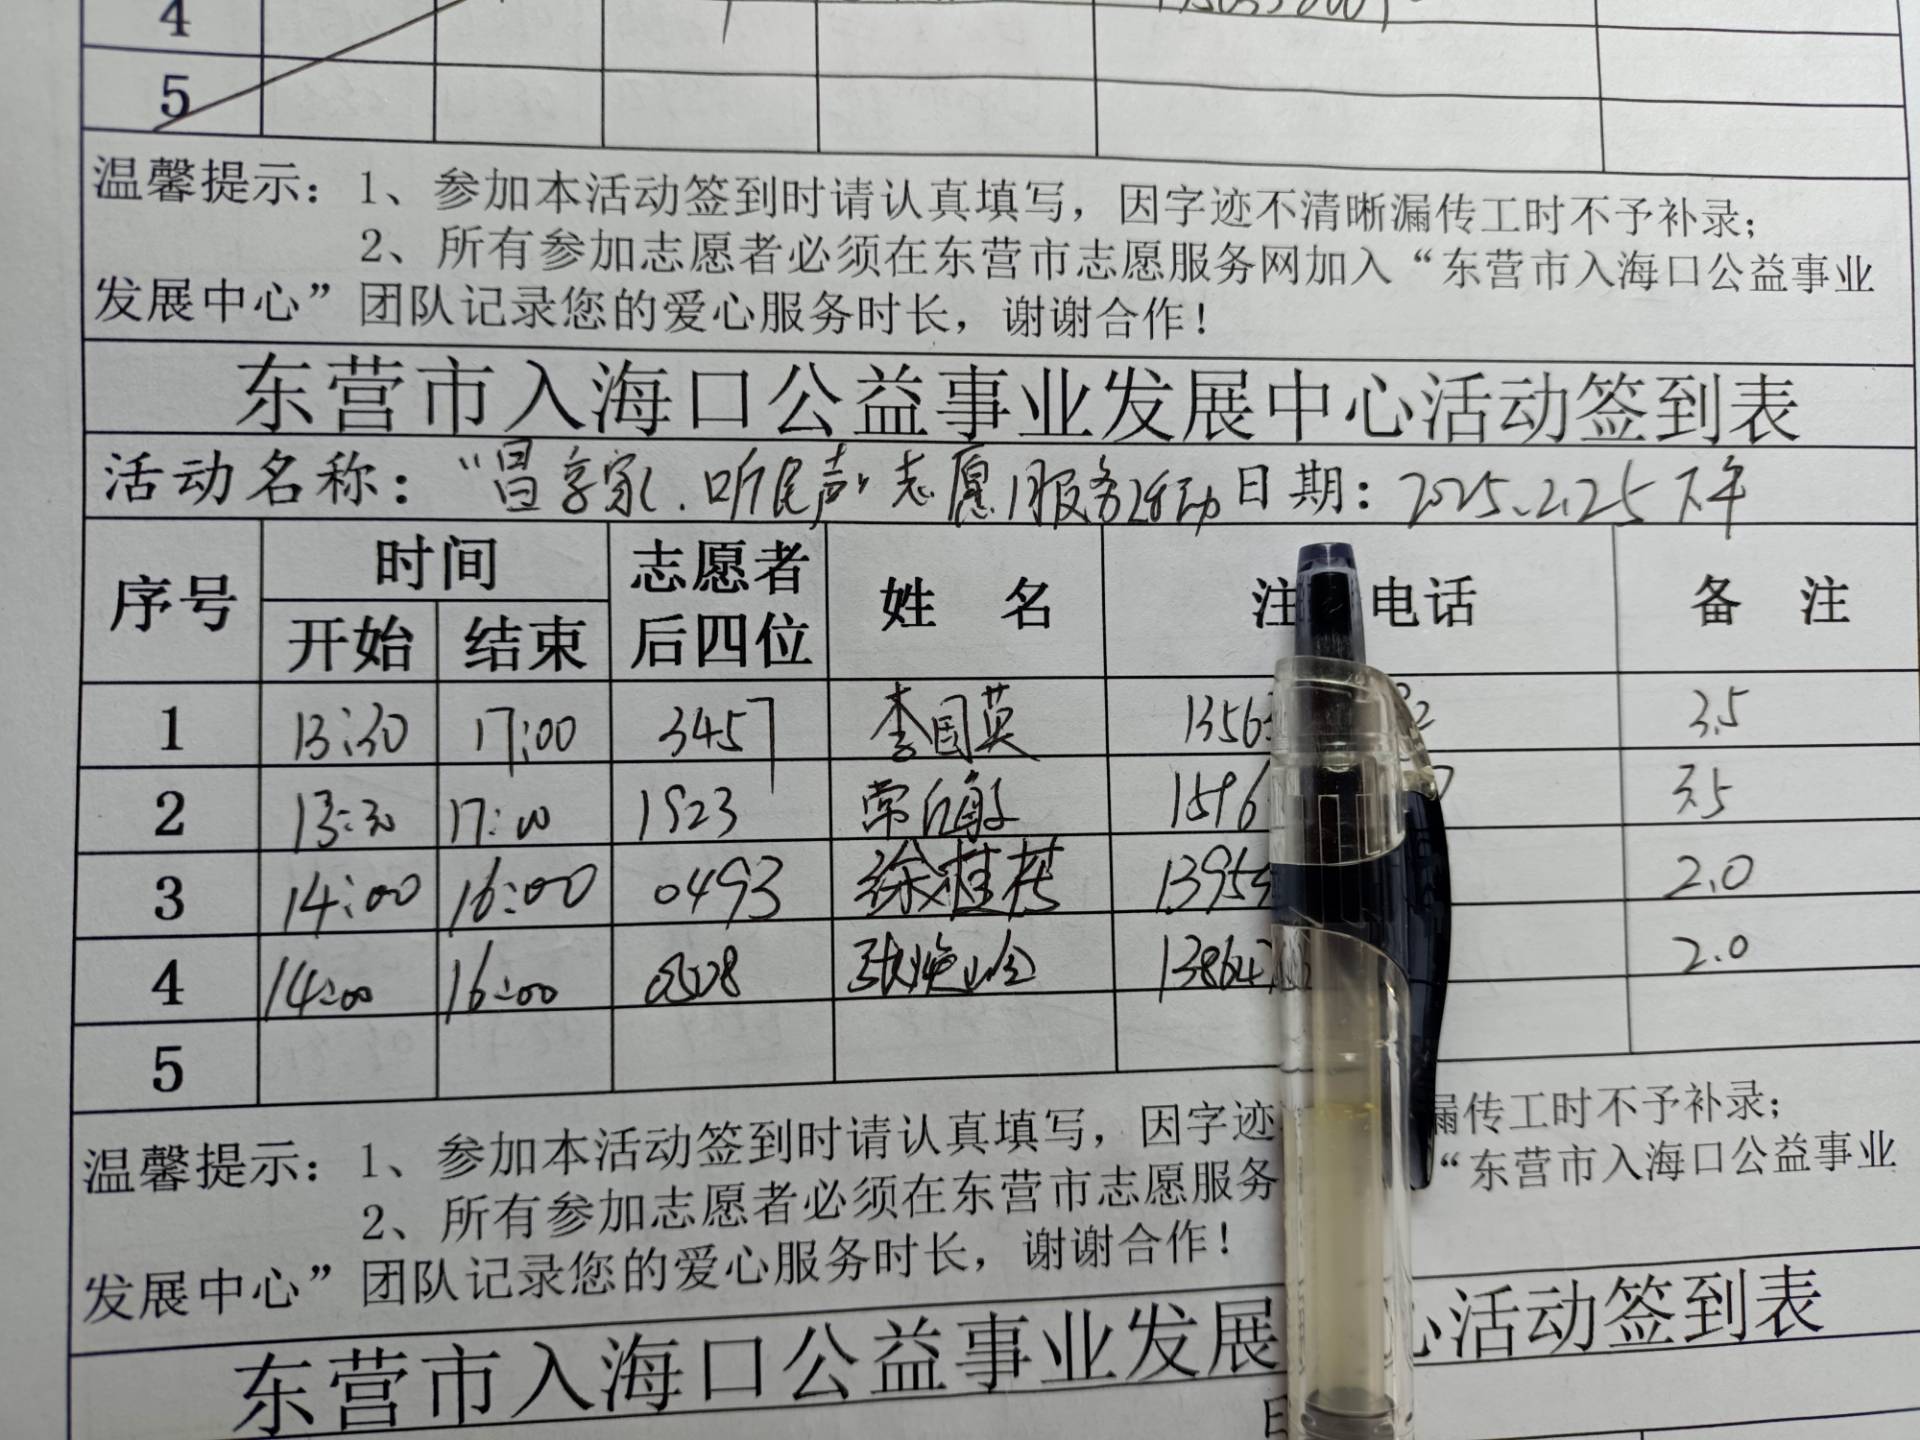 4
5
温馨提示：1、参加本活动签到时请认真填写，因字迹不清晰漏传工时不予补录；
2、所有参加志愿者必须在东营市志愿服务网加入“东营市入海口公益事业
发展中心”团队记录您的爱心服务时长，谢谢合作！
东营市入海口公益事业发展中心活动签到表
活动名称：“昌享家.听民声”志愿服务活动 日期：2025.2.25下午
序号 时间 志愿者 姓 名 注 电话 备 注
开始 结束 后四位
1 13:30 17:00 3457 李国英 1356 2 3.5
2 13:30 17:00 1923 常 1596 3.5
3 14:00 16:00 0493 徐桂英 1395 2.0
4 14:00 16:00 0508 张焕 13864 2.0
5
温馨提示：1、参加本活动签到时请认真填写，因字迹 漏传工时不予补录；
2、所有参加志愿者必须在东营市志愿服务 “东营市入海口公益事业
发展中心”团队记录您的爱心服务时长，谢谢合作！
东营市入海口公益事业发展 心活动签到表